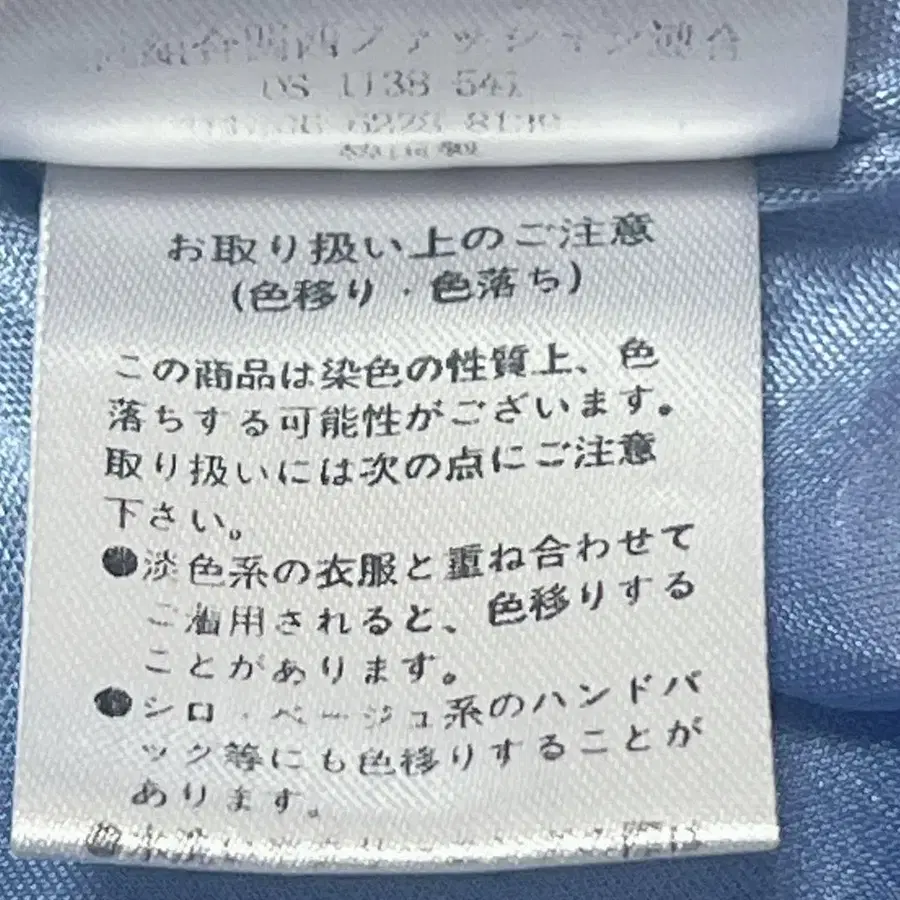 組合関西ファッション連合
DS 1138 541
6228 8130
お取り扱い上のご注意
(色移り・色落ち)
この商品は染色の性質上、色
落ちする可能性がございます。
取り扱いには次の点にご注意
下さい。
●淡色系の衣服と重ね合わせて
ご着用されると、色移りする
ことがあります。
●シロ・ベージュ系のハンドバ
ック等にも色移りすることが
あります。